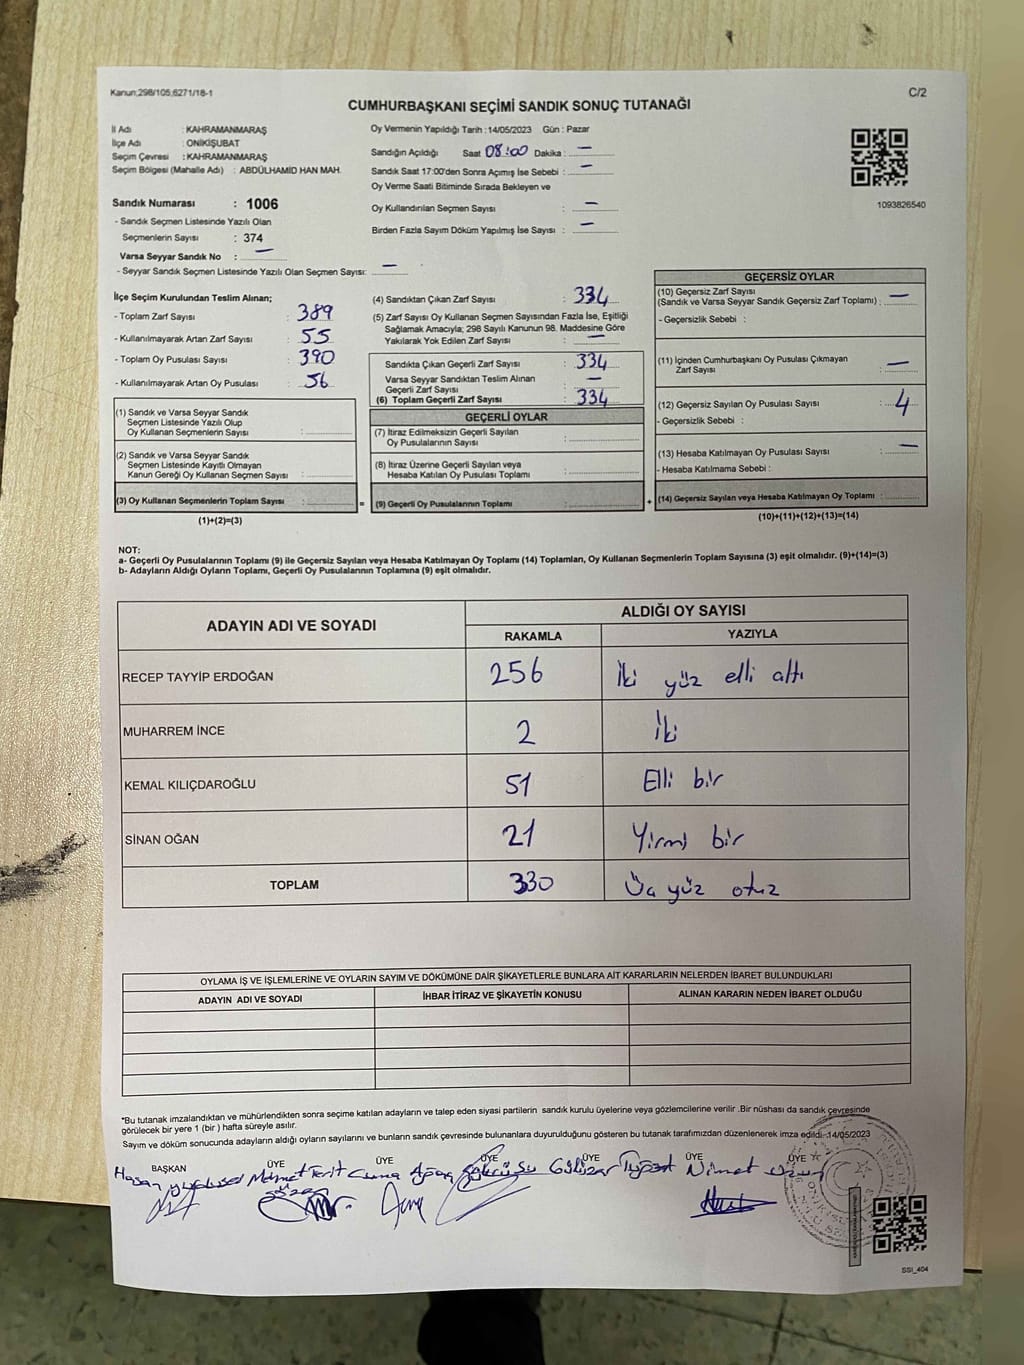 Kanun;298/105;6271/18-1
C/2
CUMHURBAŞKANI SEÇİMİ SANDIK SONUÇ TUTANAĞI
İl Adı : KAHRAMANMARAŞ
İlçe Adı : ONİKİŞUBAT
Seçim Çevresi : KAHRAMANMARAŞ
Seçim Bölgesi (Mahalle Adı) : ABDÜLHAMİD HAN MAH.
Sandık Numarası : 1006
- Sandık Seçmen Listesinde Yazılı Olan
Seçmenlerin Sayısı : 374
Varsa Seyyar Sandık No : —
- Seyyar Sandık Seçmen Listesinde Yazılı Olan Seçmen Sayısı: —
Oy Vermenin Yapıldığı Tarih : 14/05/2023 Gün : Pazar
Sandığın Açıldığı Saat 08:00 Dakika : —
Sandık Saat 17:00'den Sonra Açımış İse Sebebi : —
Oy Verme Saati Bitiminde Sırada Bekleyen ve
Oy Kullandırılan Seçmen Sayısı : —
Birden Fazla Sayım Döküm Yapılmış İse Sayısı : —
1093826540
İlçe Seçim Kurulundan Teslim Alınan;
- Toplam Zarf Sayısı : 389
- Kullanılmayarak Artan Zarf Sayısı : 55
- Toplam Oy Pusulası Sayısı : 390
- Kullanılmayarak Artan Oy Pusulası : 56
(1) Sandık ve Varsa Seyyar Sandık
Seçmen Listesinde Yazılı Olup
Oy Kullanan Seçmenlerin Sayısı :
(2) Sandık ve Varsa Seyyar Sandık
Seçmen Listesinde Kayıtlı Olmayan
Kanun Gereği Oy Kullanan Seçmen Sayısı :
(3) Oy Kullanan Seçmenlerin Toplam Sayısı :
(1)+(2)=(3)
(4) Sandıktan Çıkan Zarf Sayısı : 334
(5) Zarf Sayısı Oy Kullanan Seçmen Sayısından Fazla İse, Eşitliği
Sağlamak Amacıyla; 298 Sayılı Kanunun 98. Maddesine Göre
Yakılarak Yok Edilen Zarf Sayısı : —
Sandıkta Çıkan Geçerli Zarf Sayısı : 334
Varsa Seyyar Sandıktan Teslim Alınan
Geçerli Zarf Sayısı : —
(6) Toplam Geçerli Zarf Sayısı : 334
GEÇERLİ OYLAR
(7) İtiraz Edilmeksizin Geçerli Sayılan
Oy Pusulalarının Sayısı :
(8) İtiraz Üzerine Geçerli Sayılan veya
Hesaba Katılan Oy Pusulası Toplamı :
= (9) Geçerli Oy Pusulalarının Toplamı :
GEÇERSİZ OYLAR
(10) Geçersiz Zarf Sayısı
(Sandık ve Varsa Seyyar Sandık Geçersiz Zarf Toplamı) : —
- Geçersizlik Sebebi :
(11) İçinden Cumhurbaşkanı Oy Pusulası Çıkmayan
Zarf Sayısı : —
(12) Geçersiz Sayılan Oy Pusulası Sayısı : 4
- Geçersizlik Sebebi :
(13) Hesaba Katılmayan Oy Pusulası Sayısı : —
- Hesaba Katılmama Sebebi :
+ (14) Geçersiz Sayılan veya Hesaba Katılmayan Oy Toplamı :
(10)+(11)+(12)+(13)=(14)
NOT:
a- Geçerli Oy Pusulalarının Toplamı (9) ile Geçersiz Sayılan veya Hesaba Katılmayan Oy Toplamı (14) Toplamları, Oy Kullanan Seçmenlerin Toplam Sayısına (3) eşit olmalıdır. (9)+(14)=(3)
b- Adayların Aldığı Oyların Toplamı, Geçerli Oy Pusulalarının Toplamına (9) eşit olmalıdır.
ADAYIN ADI VE SOYADI
ALDIĞI OY SAYISI
RAKAMLA YAZIYLA
RECEP TAYYİP ERDOĞAN 256 İki yüz elli altı
MUHARREM İNCE 2 İki
KEMAL KILIÇDAROĞLU 51 Elli bir
SİNAN OĞAN 21 Yirmi bir
TOPLAM 330 Üç yüz otuz
OYLAMA İŞ VE İŞLEMLERİNE VE OYLARIN SAYIM VE DÖKÜMÜNE DAİR ŞİKAYETLERLE BUNLARA AİT KARARLARIN NELERDEN İBARET BULUNDUKLARI
ADAYIN ADI VE SOYADI İHBAR İTİRAZ VE ŞİKAYETİN KONUSU ALINAN KARARIN NEDEN İBARET OLDUĞU
*Bu tutanak imzalandıktan ve mühürlendikten sonra seçime katılan adayların ve talep eden siyasi partilerin sandık kurulu üyelerine veya gözlemcilerine verilir .Bir nüshası da sandık çevresinde
görülecek bir yere 1 (bir ) hafta süreyle asılır.
Sayım ve döküm sonucunda adayların aldığı oyların sayılarını ve bunların sandık çevresinde bulunanlara duyurulduğunu gösteren bu tutanak tarafımızdan düzenlenerek imza edildi. 14/05/2023
BAŞKAN ÜYE ÜYE ÜYE ÜYE ÜYE ÜYE
Hasan Mehmet Cuma Gülizar Nimet
SSI_404